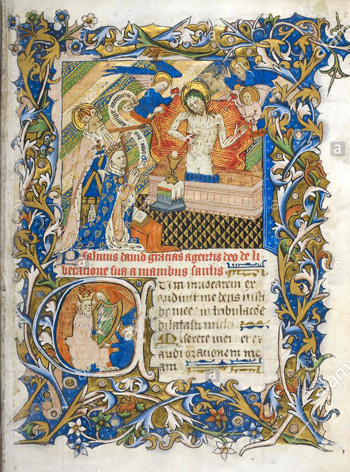 Psalmus david gracias agentis deo de li
beracione sua a manibus saulis
Cum inuocarem ex
audiuit me deus iusti
cie mee in tribulacōe
dilatasti michi
Miserere mei et ex
audi oracionem me
am
a
a